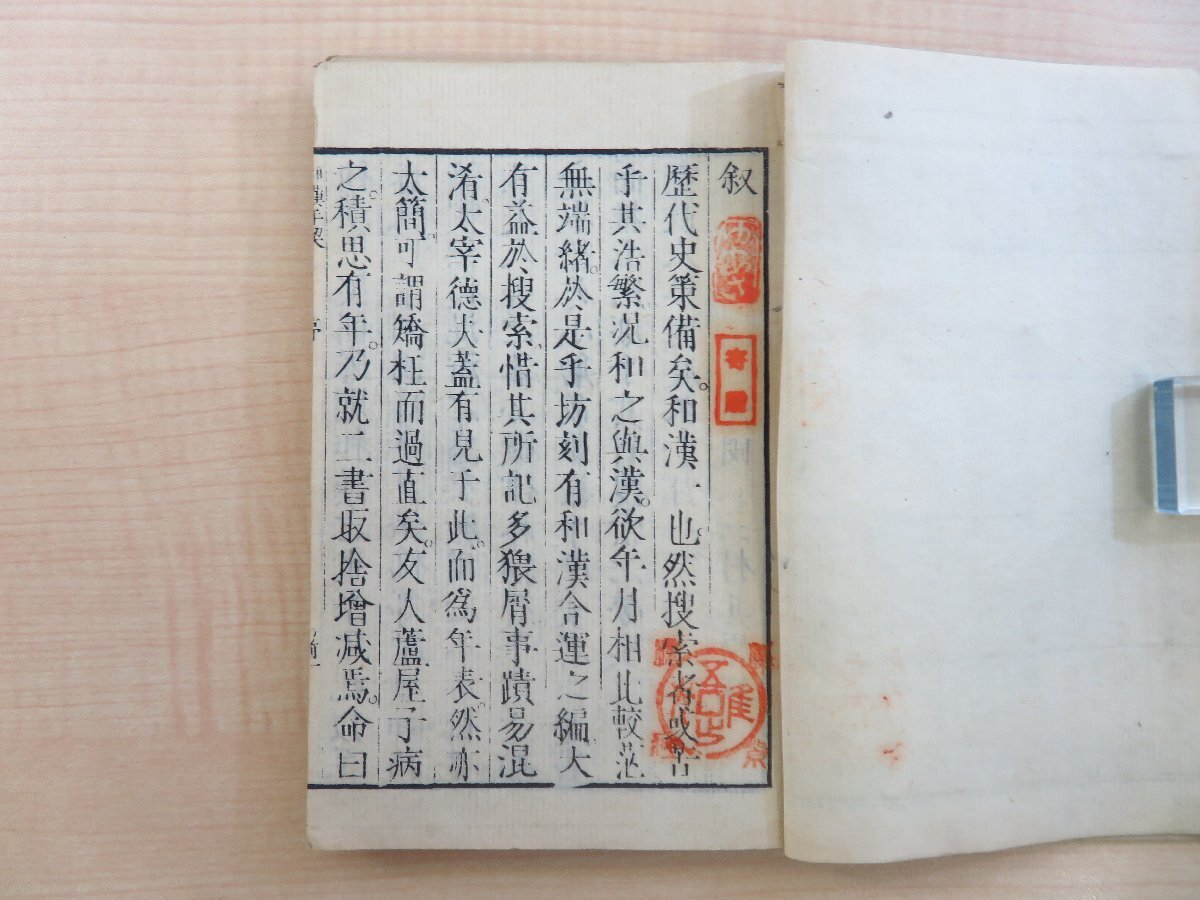 叙
歷代史策備矣。和漢一也。然搜索者或苦
乎其浩繁。况和之與漢。欲年月相比較。茫
無端緒。於是乎坊刻有和漢合運之編。大
有益於搜索。惜其所記多猥屑。事蹟易混
淆。太宰德夫蓋有見于此。而爲年表。然亦
太簡。可謂矯枉而過直矣。友人蘆屋子病
之。積思有年。乃就二書取捨增減焉。命曰
寄贈